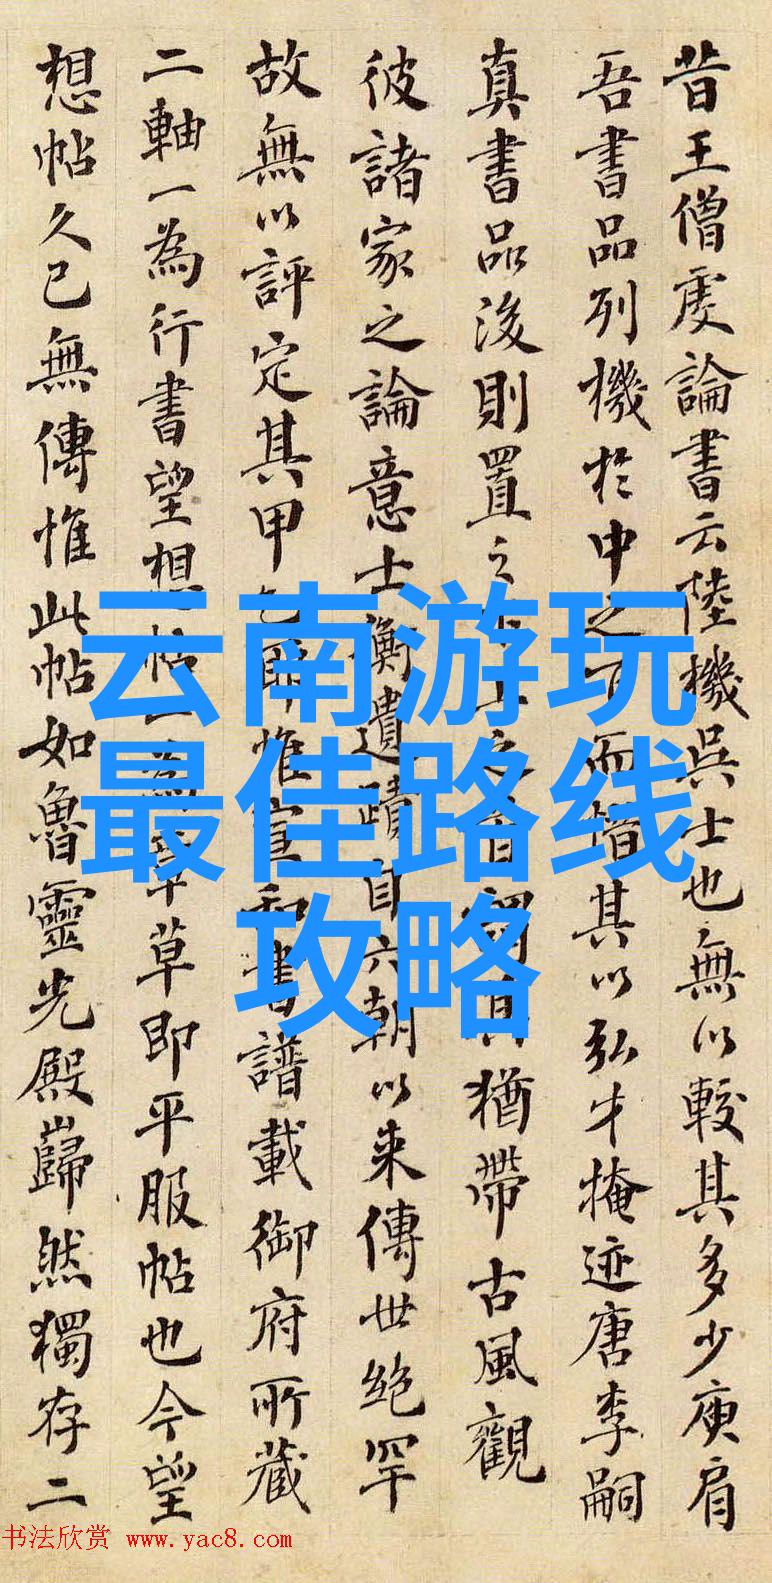 昔王僧虔論書云陸機吳士也無以較其多少庾肩
吾書品列機於中之下而惜其以弘才掩迹唐李嗣
真書品後則置之下上之首謂其猶帶古風觀
彼諸家之論意士衡遺蹟自六朝以来傳世絶罕
故無以評定其甲乙耶惟宣和書譜載御府所藏
二軸一為行書望想帖一為章草草即平服帖也今望
想帖久已無傳惟此帖如魯靈光殿巋然獨存二
云南游玩
最佳路线
攻略
书法欣赏 www.yac8.com